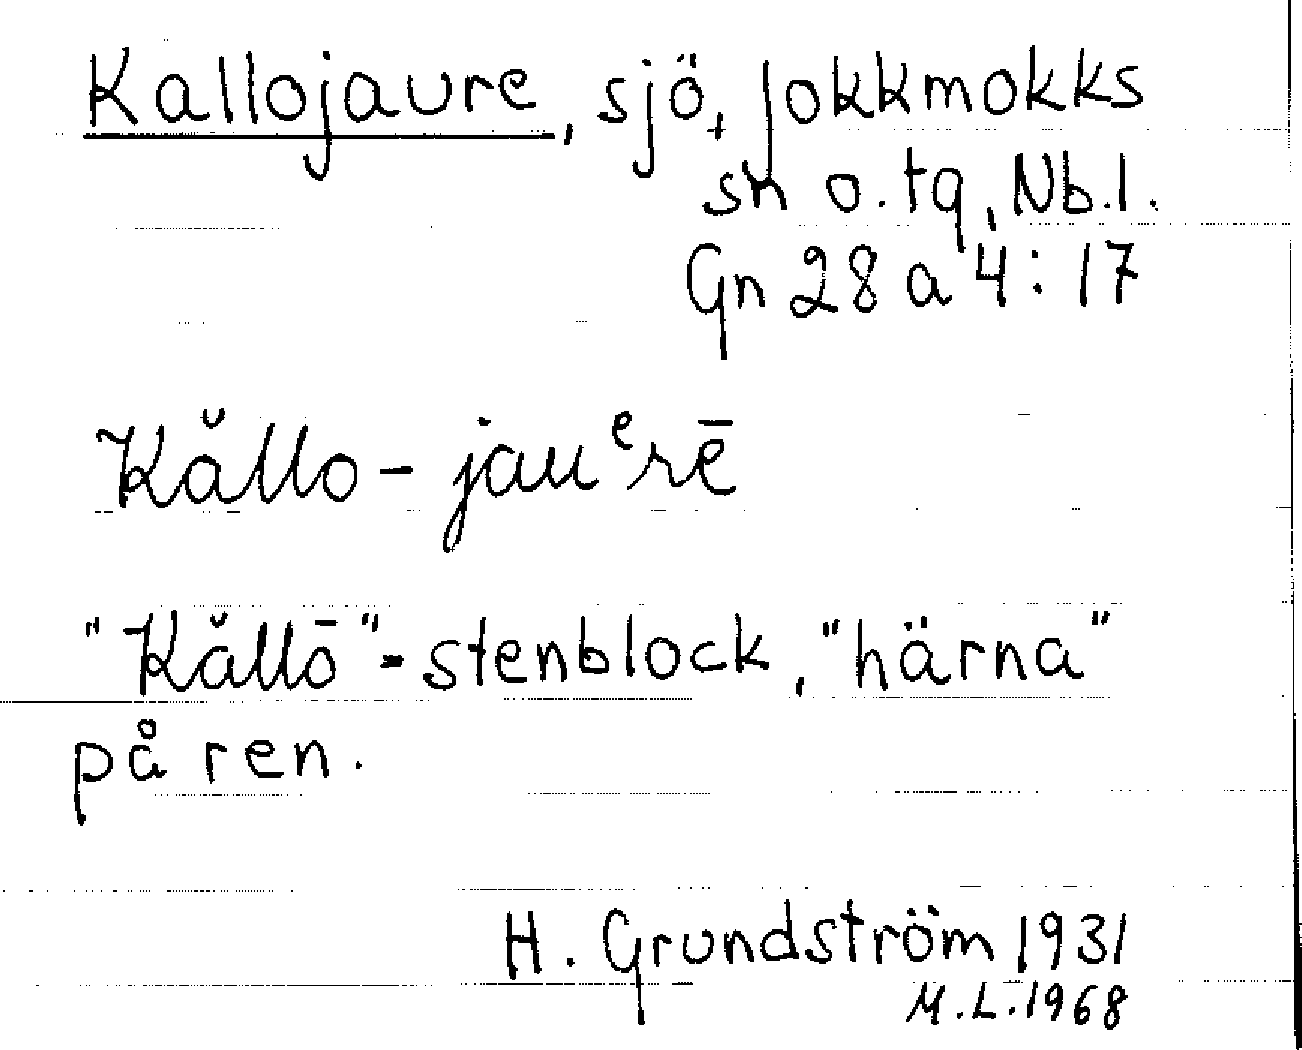 Kallojaure, sjö, Jokkmokks
sn o. tg, Nb.l.
Gn 28 a 4:17
Kăllo-jauᵉrē
"Kăllō"-stenblock, "härna"
på ren.
H. Grundström 1931
M.L. 1968